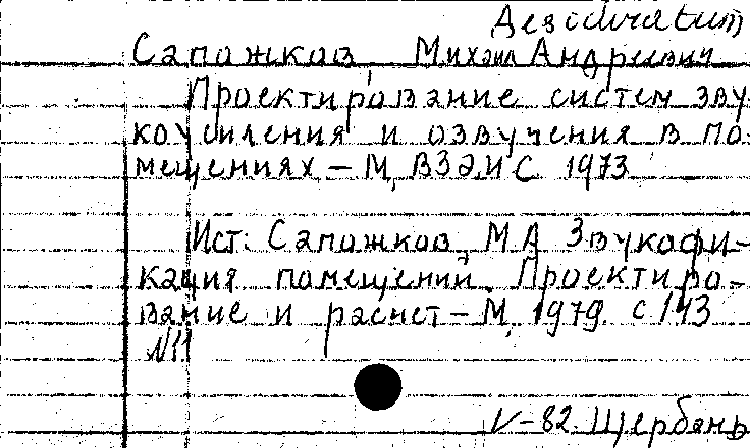 Дезidеratum
Сапожков, Михаил Андреевич
Проектирование систем зву-
коусиления и озвучения в по-
мещениях – М, ВЗЭИС 1973
Ист: Сапожков, М А Звукофи-
кация помещений. Проектиро-
вание и расчет – М, 1979. с 143
N11
V-82. Щербань